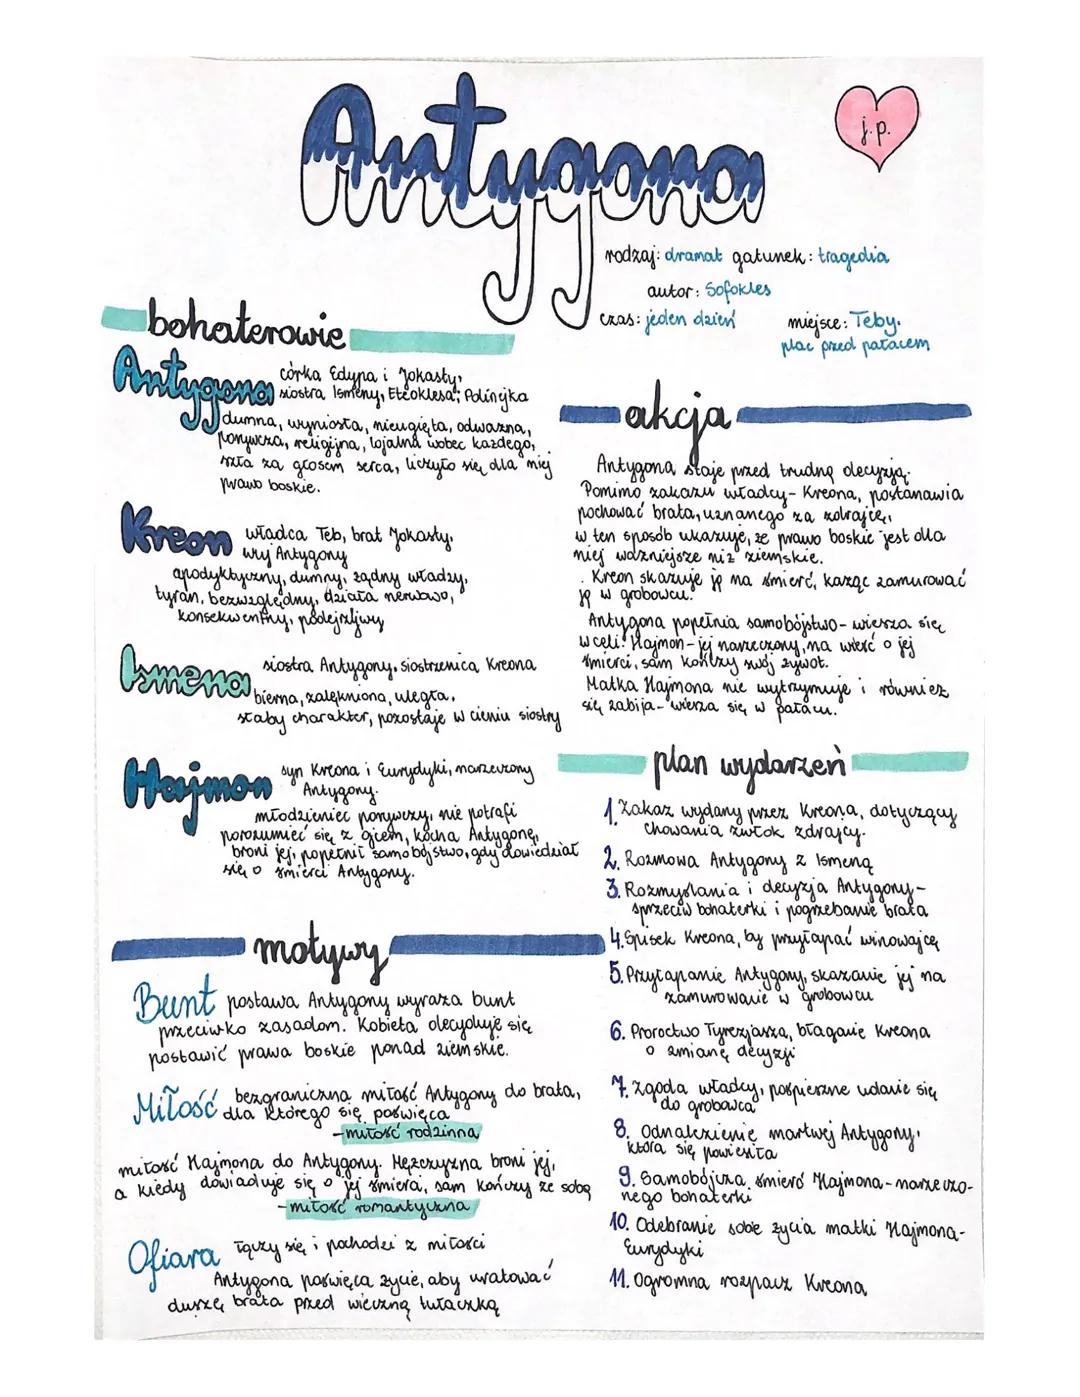 Antygona
j.p.
rodzaj: dramat gatunek: tragedia
autor: Sofokles
czas: jeden dzień
miejsce: Teby.
plac przed pałacem
bohaterowie
Antygona
córka Edypa i Jokasty,
siostra Ismeny, Eteoklesa, Polinejka
dumna, wyniosła, nieugięta, odważna,
porywcza, religijna, lojalna wobec każdego,
szła za głosem serca, liczyło się dla niej
prawo boskie.
Kreon
władca Teb, brat Jokasty,
wuj Antygony
apodyktyczny, dumny, żądny władzy,
tyran, bezwzględny, działa nerwowo,
konsekwentny, podejrzliwy
Ismena
siostra Antygony, siostrzenica Kreona
bierna, zalękniona, uległa,
słaby charakter, pozostaje w cieniu siostry
Hajmon
syn Kreona i Eurydyki, narzeczony
Antygony.
młodzieniec porywczy, nie potrafi
porozumieć się z ojcem, kocha Antygonę,
broni jej, popełnił samobójstwo, gdy dowiedział
się o śmierci Antygony.
motywy
Bunt postawa Antygony wyraża bunt
przeciwko zasadom. Kobieta decyduje się
postawić prawa boskie ponad ziemskie.
Miłość bezgraniczna miłość Antygony do brata,
dla którego się poświęca
-miłość rodzinna
miłość Hajmona do Antygony. Mężczyzna broni jej,
a kiedy dowiaduje się o jej śmierci, sam kończy ze sobą
-miłość romantyczna
Ofiara łączy się i pochodzi z miłości
Antygona poświęca życie, aby uratować
duszę brata przed wieczną tułaczką
akcja
Antygona staje przed trudną decyzją.
Pomimo zakazu władcy- Kreona, postanawia
pochować brata, uznanego za zdrajcę,
w ten sposób ukazuje, że prawo boskie jest dla
niej ważniejsze niż ziemskie.
Kreon skazuje ją na śmierć, każąc zamurować
ją w grobowcu.
Antygona popełnia samobójstwo- wiesza się
w celi. Hajmon- jej narzeczony, na wieść o jej
śmierci, sam kończy swój żywot.
Matka Hajmona nie wytrzymuje i również
się zabija- wiesza się w pałacu.
plan wydarzeń
1. Zakaz wydany przez Kreona, dotyczący
chowania zwłok zdrajcy.
2. Rozmowa Antygony z Ismeną
3. Rozmyślania i decyzja Antygony-
sprzeciw bohaterki i pogrzebanie brata
4. Spisek Kreona, by przyłapać winowajcę
5. Przyłapanie Antygony, skazanie jej na
zamurowanie w grobowcu
6. Proroctwo Tyrezjasza, błaganie Kreona
o zmianę decyzji
7. Zgoda władcy, pośpieszne udanie się
do grobowca
8. Odnalezienie martwej Antygony,
która się powiesiła
9. Samobójcza śmierć Hajmona- narzeczo-
nego bohaterki
10. Odebranie sobie życia matki Hajmona-
Eurydyki
11. Ogromna rozpacz Kreona